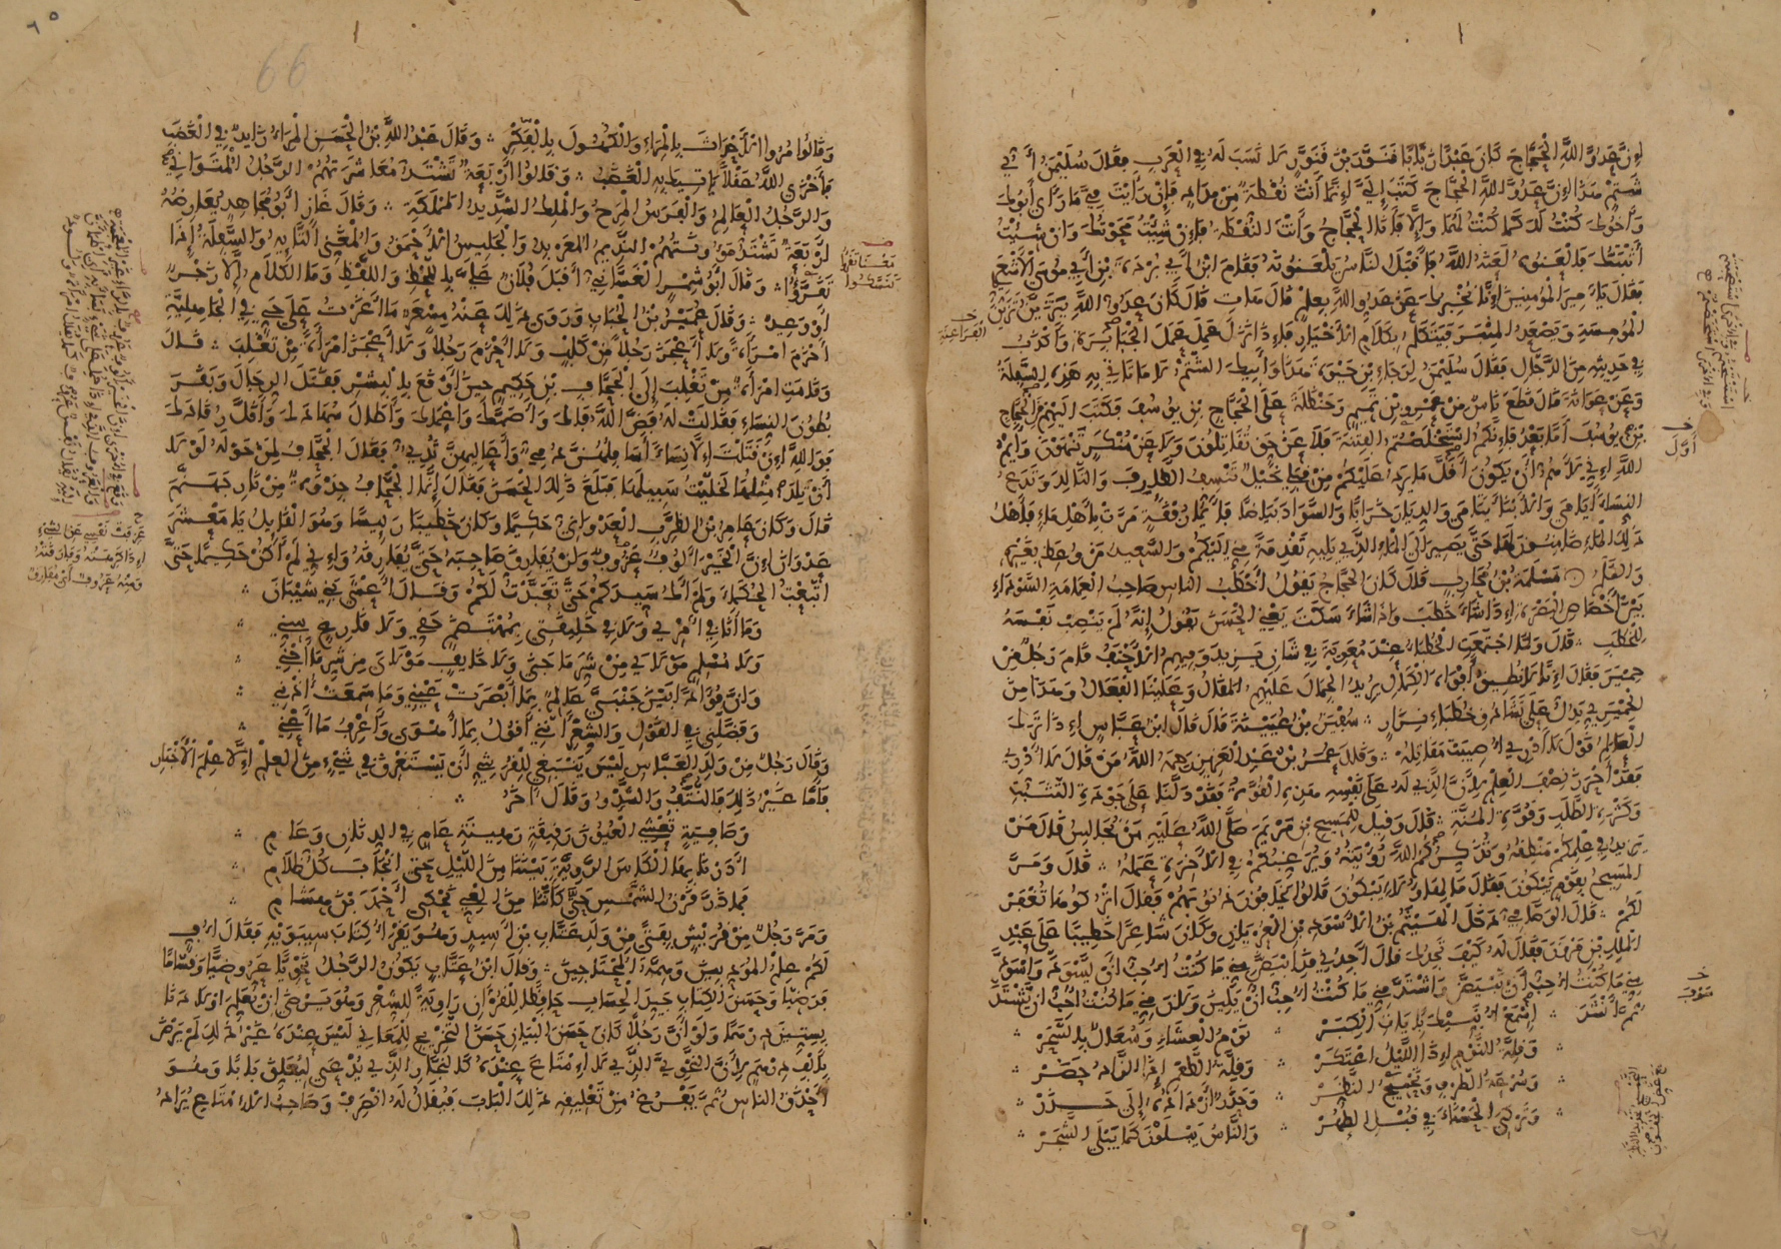 إن عدو الله الحجاج كان عبدا زبابا قنور بن قنور لا نسب له في العرب فقال سليمن أي
شتم هذا إن عدو الله الحجاج كتب إلي إنما أنت نقطة من مداد فإن رأيت في ما رأى أبوك
وأخوك كنت لك كما كنت لهما وإلا فأنا الحجاج وأنت النقطة فإن شئت محوتك وإن شئت
أثبتك فالعنوه لعنه الله فأقبل الناس يلعنونه فقام ابن أبي بردة بن أبي موسى الأشعري
فقال يا أمير المؤمنين إنا نخبرك عن عدو الله بعلم قال هات قال كان عدو الله يتزين تزين
المومسة ويصعد المنبر فيتكلم بكلام الأخيار فإذا نزل عمل عمل الجبابرة وأكذب
في حديثه من الدجال فقال سليمن لرجاء بن حيوة هذا وأبيك الشتم لا ما تأتي به هذه السفلة
وعن عوانة قال قطع ناس من عمرو بن تميم وحنظلة على الحجاج بن يوسف فكتب إليهم الحجاج
بن يوسف أما بعد فإنكم استخلصتم الفتنة فلا عن حق تقاتلون ولا عن منكر تنهون وأيم
الله إني لأهم أن يكون أول ما يرد عليكم من قبلي خيل تنسف الطارف والتالد وتدع
النساء أيامى والأبناء يتامى والديار خرابا والسواد بياضا فأيما رفقة مرت بأهل ماء فأهل
ذلك الماء ضامنون لها حتى يصير إلى الماء الذي يليه تقدمة مني إليكم والسعيد من وعظ بغيره
والسلم مسلمة بن محارب قال كان الحجاج يقول أخطب الناس صاحب العمامة السوداء
بين أخصاص البصرة إذا شاء خطب وإذا شاء سكت يعني الحسن يقول إنه لم ينصب نفسه
للخطب قال ولما اجتمعت الخطباء عند معوية في شان يزيد وفيهم الأحنف قام رجل من
حمير فقال إنا لا نطيق أفواه الكمال يريد الجمال عليهم المقال وعلينا الفعال وهذا من
الحميري يدل على تشادق خطباء نزار سفين بن عيينة قال قال ابن عباس إذا ترك
العالم قول لا أدري أصيبت مقاتله وقال عمر بن عبد العزيز رحمه الله من قال لا أدري
فقد أحرز نصف العلم لأن الذي له على نفسه هذه القوة فقد دلنا على جودة التثبت
وكثرة الطلب وقوة المنة قال وقيل للمسيح بن مريم صلى الله عليه من نجالس قال من
يزيد في علمكم منطقه وتذكركم الله رؤيته ويرغبكم في الآخرة عمله قال ومر
المسيح بقوم يبكون فقال ما لهؤلاء يبكون قالوا يخافون ذنوبهم فقال اتركوها تغفر
لكم قال الوصافي دخل الهيثم بن الأسود بن العريان وكان شاعرا خطيبا على عبد
الملك بن مرون فقال له كيف تجدك قال أجدني قد ابيض مني ما كنت أحب أن يسود واسود
مني ما كنت أحب أن يبيض واشتد مني ما كنت أحب أن يلين ولان مني ما كنت أحب أن يشتد
ثم أنشد اسمع أنبيك بآيات الكبر نوم العشاء وسعال بالسحر
وقلة النوم إذا الليل اعتكر وقلة الطعم إذا الزاد حضر
وسرعة الطرف وتحميج النظر وحذرا أزداده إلى حذر
وتركي الحسناء في قبل الطهر والناس يبلون كما يبلى الشجر
أول
الفراعنة
٦٥
66
وقالوا مروا الأحداث بالمراء والكهول بالفكر وقال عبد الله بن الحسن المراء رائد الغضب
فأخزى الله عقلا يأتيك به الغضب وقالوا أربعة تشتد معاشرتهم الرجل المتواني
والرجل العالم والفرس المرح والملك الشديد المملكة وقال غاز أبو مجاهد يعارضه
أربعة تشتد مؤنتهم النديم المعربد والجليس الأحمق والمغني التائه والسفلة إذا
تقرأ وقال أبو شمر الغساني أقبل فلان علي باللحظ واللفظ وما الكلام إلا زجر
أو وعيد وقال عمير بن الحباب وروى ذلك عنه مسعر ما أغرت على حي في الجاهلية
أحزم امرأة ولا أعجز رجلا من كلب ولا أحزم رجلا ولا أعجز امرأة من تغلب قال
وقامت امرأة من تغلب إلى الجحاف بن حكيم حين أوقع بالبشر فقتل الرجال وبقر
بطون النساء فقالت له فض الله فاك وأصمك وأعماك وأطال سهادك وأقل رقادك
فوالله إن قتلت إلا نساء أسافلهن دمي وأعاليهن ثدي فقال الجحاف لمن حوله لولا
أن تلد مثلها لخليت سبيلها فبلغ ذلك الحسن فقال إنما الجحاف جذوة من نار جهنم
قال وكان عامر بن الظرب العدواني حكيما وكان خطيبا رئيسا وهو القائل يا معشر
عدوان إن الخير ألوف عزوف ولن يفارق صاحبه حتى يفارقه وإني لم أكن حكيما حتى
اتبعت الحكماء ولم أك سيدكم حتى تعبدت لكم وقال أعشى بني شيبان
وما أنا في أمري ولا في خليقتي بمهتضم حقي ولا قارع سني
ولا مسلم مولاي من شر ما جنى ولا خائف مولاي من شر ما أجني
وإن فؤادا بين جنبي عالم بما أبصرت عيني وما سمعت أذني
وفضلني في القول والشعر أنني أقول بما أهوى وأعرف ما أعني
وقال رجل من ولد العباس ليس ينبغي للقرشي أن يستغرق في شيء من العلم إلا علم الأخبار
فأما غير ذلك فالنتف والشدو وقال آخر
وصافية تعشي العيون رقيقة رهينة عام في الدنان وعام
أدرنا بها الكأس الروية بيننا من الليل حتى انجاب كل ظلام
فما ذر قرن الشمس حتى كأننا من العي نحكي أحمد بن هشام
ومر رجل من قريش بفتى من ولد عتاب بن أسيد وهو يقرأ كتاب سيبويه فقال أف
لكم علم المؤدبين وهمة المحتاجين وقال ابن عتاب يكون الرجل نحويا عروضيا وقساما
فرضيا وحسن الكتاب جيد الحساب حافظا للقرآن راوية للشعر وهو يرضى أن يعلم أولادنا
بستين درهما ولو أن رجلا كان حسن البيان حسن التخريج للمعاني ليس عنده غير ذلك لم يرض
بألف درهم لأن النحوي الذي لا إمتاع عنده كالنجار الذي يدعى ليعلق بابا وهو
أحذق الناس ثم يفرغ من تعليقه ذلك الباب فيقال له انصرف وصاحب الإمتاع يراد